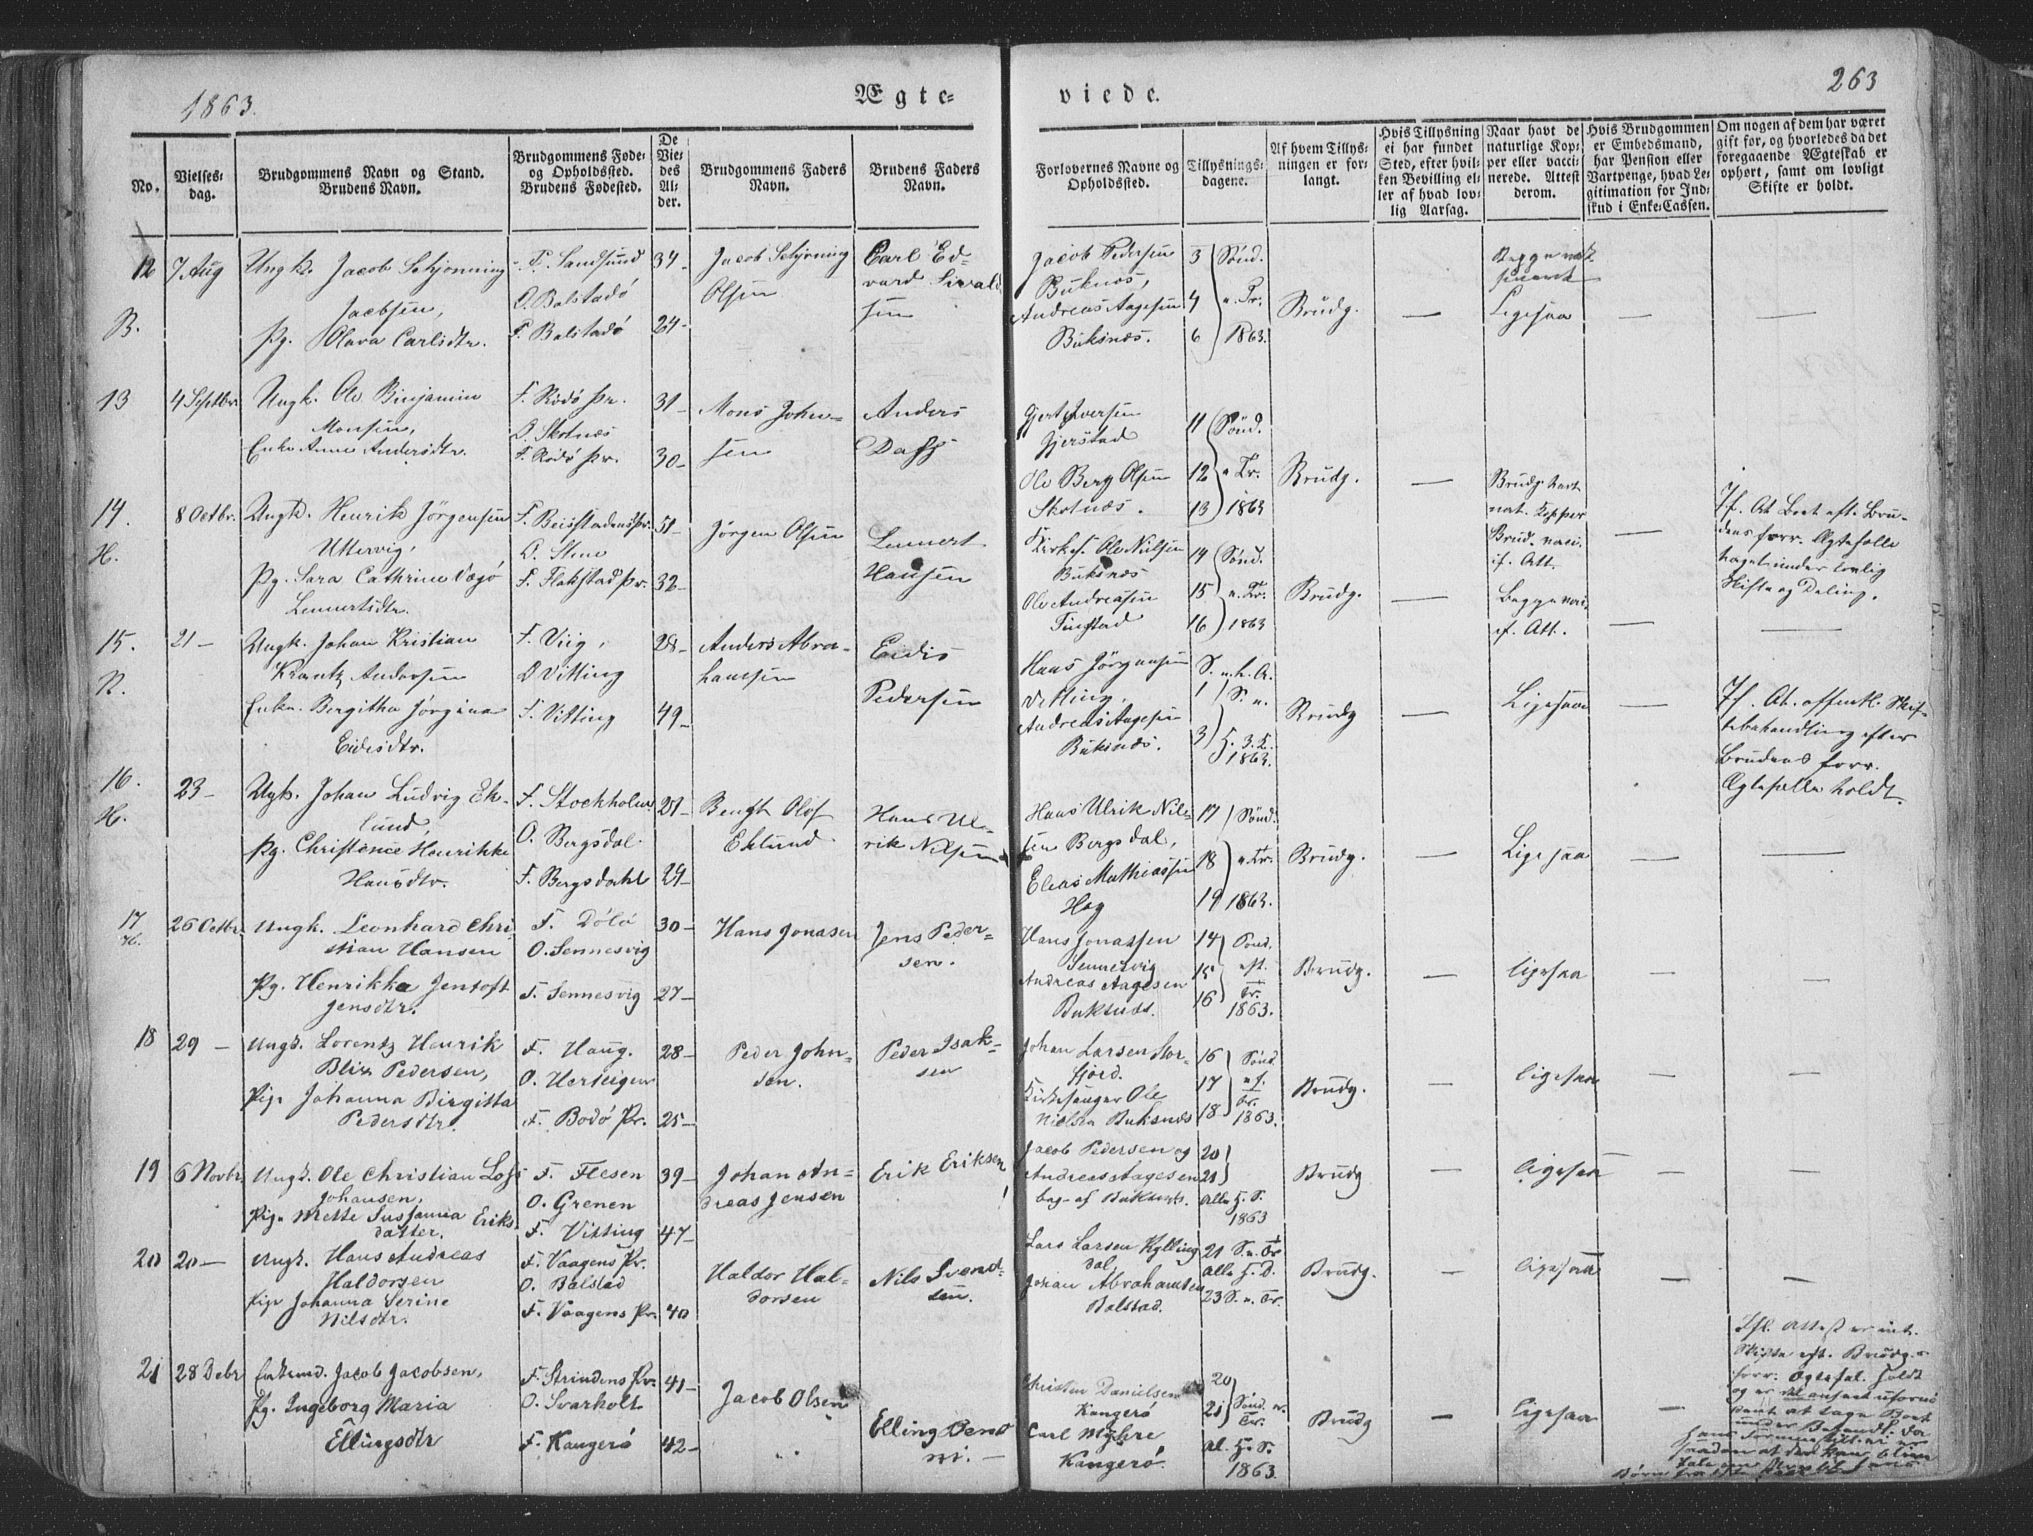 1863.
Ægte-
viede.
263
No.
Vielses-
dag.
Brudgommens Navn og Stand.
Brudens Navn.
Brudgommens Føde-
og Opholdssted.
Brudens Fødested.
De
Vie-
des
Al-
der.
Brudgommens Faders
Navn.
Brudens Faders
Navn.
Forlovernes Navne og
Opholdssted.
Tillysnings-
dagene.
Af hvem Tillys-
ningen er for-
langt.
Hvis Tillysning
ei har fundet
Sted, efter hvil-
ken Bevilling el-
ler af hvad lov-
lig Aarsag.
Naar havt de
naturlige Kop-
per eller vacci-
nerede. Attest
derom.
Hvis Brudgommen
er Embedsmand,
har Pension eller
Vartpenge, hvad Le-
gitimation for Ind-
skud i Enke-Cassen.
Om nogen af dem har været
gift før, og hvorledes da det
foregaaende Ægteskab er
ophørt, samt om lovligt
Skifte er holdt.
12
B.
7 Aug
Ungk. Jacob Schjønning
Jacobsen,
Pg. Olava Carlsdtr.
F. Sandsund
O. Balstadø
F. Balstadø
34
24
Jacob Schjøning
Olsen
Carl Ed-
vard Sivald
sen
Jacob Pedersen
Buknæs,
Andreas Aagesen
Buksnæs.
3
4
6
Sønd.
e. Tr.
1863.
Brudg.
Ligesaa
13
4 Septbr.
Ungk. Ole Binjamin
Monsen,
Enke Anne Andersdtr.
F. Rødø Pr.
O. Skotnæs
F. Rødø Pr.
31
30
Mons John-
sen
Anders
Dass
Gjert Iversen
Gjerstad
Ole Berg Olsen
Skotnæs.
11
12
13
Sønd.
e. Tr.
1863
Brudg.
Brudg havt
nat. Kopper
Brud. vacc.
if. Att.
14.
H.
8 Octbr.
Ungk. Henrik Jørgensen
Uttervig,
Pg. Sara Cathrine Vaagø
Lennertsdtr.
F. Beitstadens Pr.
O. Steine
F. Flakstad Pr.
51
32
Jørgen Olsen
Lennert
Hansen
Kirkes. Ole Nielsen
Buksnæs
Ole Andreasen
Finstad
14
15
16
Sønd.
e. Tr.
1863
Brudg.
Begge vacc.
if. Att.
15.
21 —
Ungk. Johan Kristian
Krantz Andersen
Enke. Bergitha Jørgina
Eidisdtr.
F. Viig,
O Vitting
F. Vitting
28
49
Anders Abra-
hamsen
Eidis
Pedersen
Hans Jørgensen
Vitting,
Andreas Aagesen
Buksnæs.
1
3
1863.
Brudg
Ligesaa
If. At. offentl. Skif-
tebehandling efter
Brudens forr.
Ægtefælle holdt.
16.
H.
23 —
Ungk. Johan Ludvig Ek-
lund,
Pg. Christence Henrikke
Hansdtr.
F. Stockholm
O. Bergsdal.
F. Bergsdahl
27
29
Bengt Olof
Eklund
Hans Ul-
rik Nilsen
Hans Ulrik Nil-
sen Bergsdal,
Elias Mathiassen
Hag
17
18
19
Sønd.
e. Tr.
1863.
Brudg.
Ligesaa
17
H.
26 Octbr.
Ungk. Leonhard Chri-
stian Hansen
Pg. Henrikka Jentoft
Jensdtr.
F. Dólø
O. Sennesvig
F. Sennesvig
30
27
Hans Jonasen
Jens Peder-
sen.
Hans Jonassen
Sennesvig
Andreas Aagesen
Buksnæs.
14
15
16
Sønd.
eft.
Tr.
1863.
Brudg.
Ligesaa
18
29 —
Ungk. Lorentz Henrik
Blix Pedersen,
Pige Johanna Birgitta
Pedersdtr.
F. Haug.
O. Uerteigen
F. Bodø Pr.
28
25
Peder John-
sen.
Peder Isak-
sen
Johan Larsen Stor-
fjord.
Kirkesanger Ole
Nielsen Buksnæs
16
17
18
Sønd
ef.
Tr.
1863.
Brudg.
Ligesaa
19
6 Novbr
Ungk. Ole Christian Loss
Johansen,
Pige Mette Susanna Eriks
datter.
F. Flesen
O. Grenen
F. Vitting
39
47
Johan An-
dreas Jensen
Erik Eriksen
Jacob Pedersen og
Andreas Aagesen
beg- af Buksnæs.
20
21
Alle H. D.
1863
Brudg
Ligesaa
20
20 —
Ungk. Hans Andreas
Haldorsen
Pige Johanna Serine
Nilsdtr.
F. Vaagens Pr.
O. Balstad
F. Vaagens Pr.
40
Haldor Hal-
dorsen
Nils Svend-
sen.
Lars Larsen Kylling
dal,
Johan Abrahamsen
Balstad.
21 S. e. Tr
Alle H. D.
23 S. e. Tr.
Brudg.
Ligesaa
21
28 Debr
Enkemd. Jacob Jacobsen,
Pg. Ingeborg Maria
Ellingsdtr
F. Strindens Pr.
O. Svarholt
F. Kangerø
41
42
Jacob Olsen
Elling Bend
Christen Danielsen
Kangerø
Carl Myhre
Kangerø
20
21
Sønd. e.
Tr.
1863.
Brudg
Ligesaa